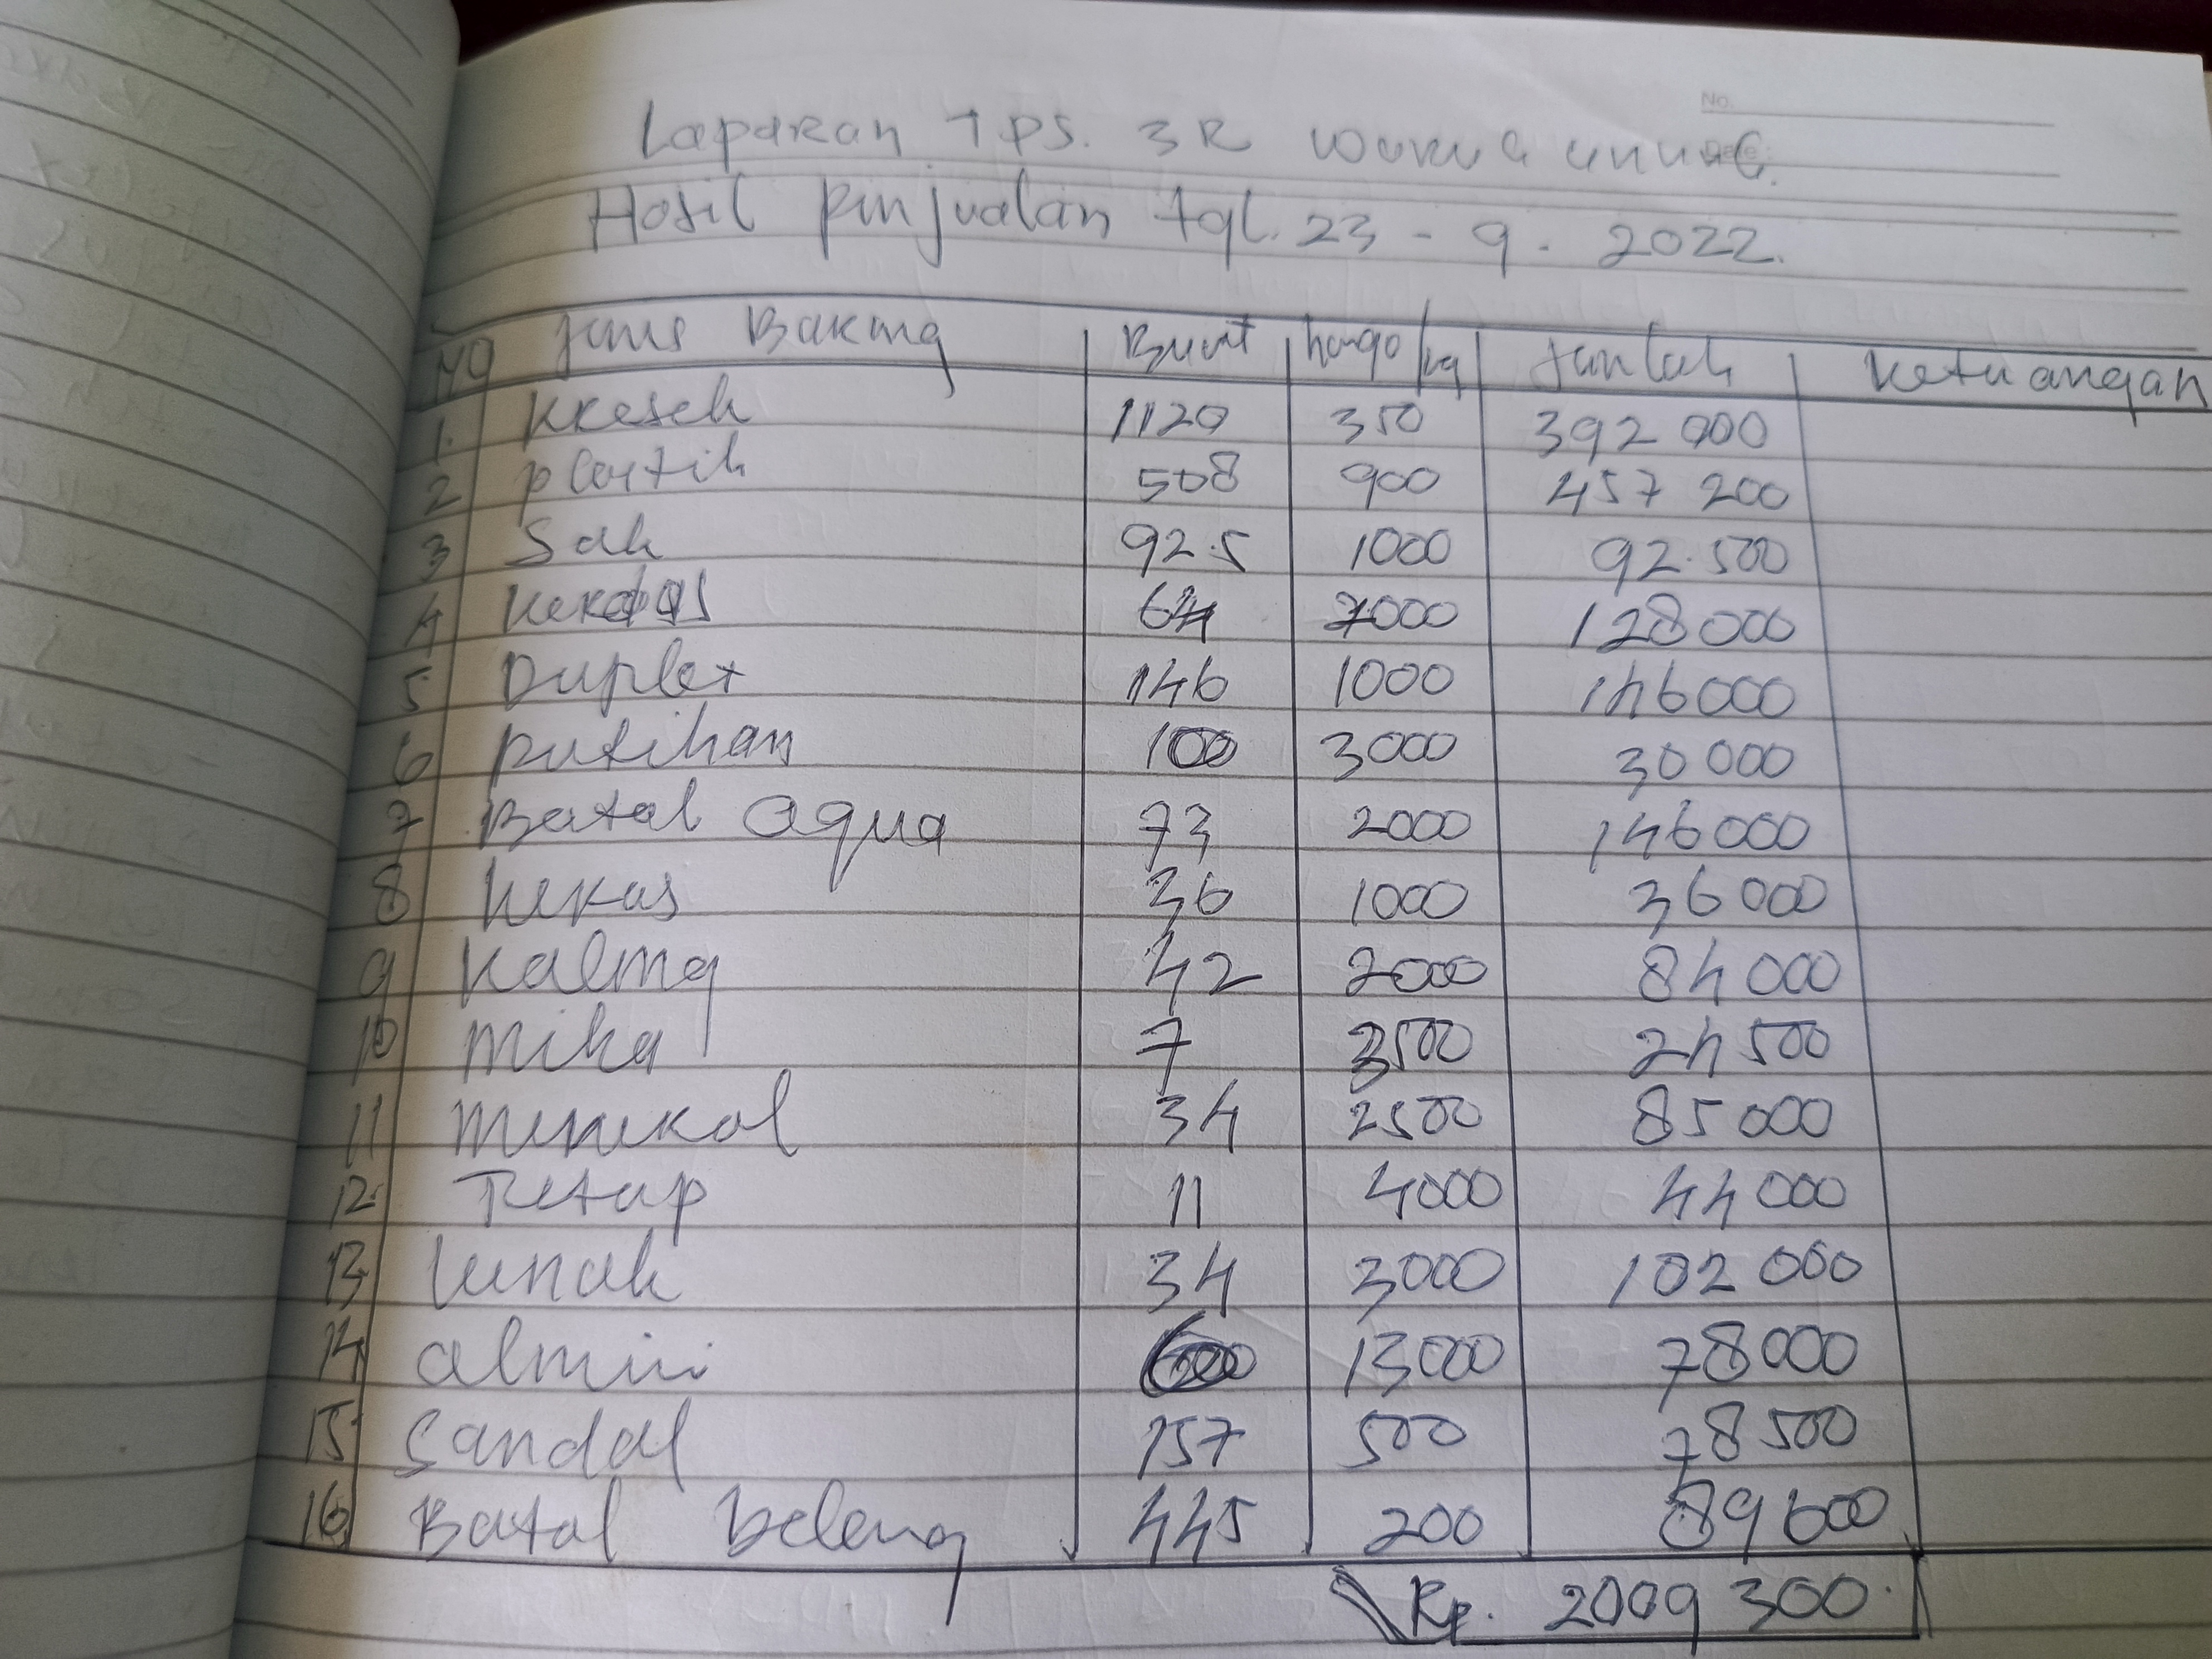 No.
Laporan TPS. 3R
Date:
Hasil pinjualan tgl. 23 - 9 - 2022.
NO Jenis Barang Berat harga/kg Jumlah Keterangan
1. Kresek 1120 350 392 000
2 plastik 508 900 457 200
3 Sak 92.5 1000 92.500
4 64 2000 128000
5 Duplex 146 1000 146000
6 putihan 3000 30 000
7 Botol aqua 73 2000 146000
8 kekas 36 1000 36 000
9 Kaleng 42 2000 84 000
10 mika 7 3500 24 500
11 minekal 34 2500 85 000
12. Tetup 11 4000 44 000
13 34 3000 102 000
14 almini 13000 78000
15. Sandal 157 500 78500
16 Botol beleng 445 200 89600
Rp. 2009 300.